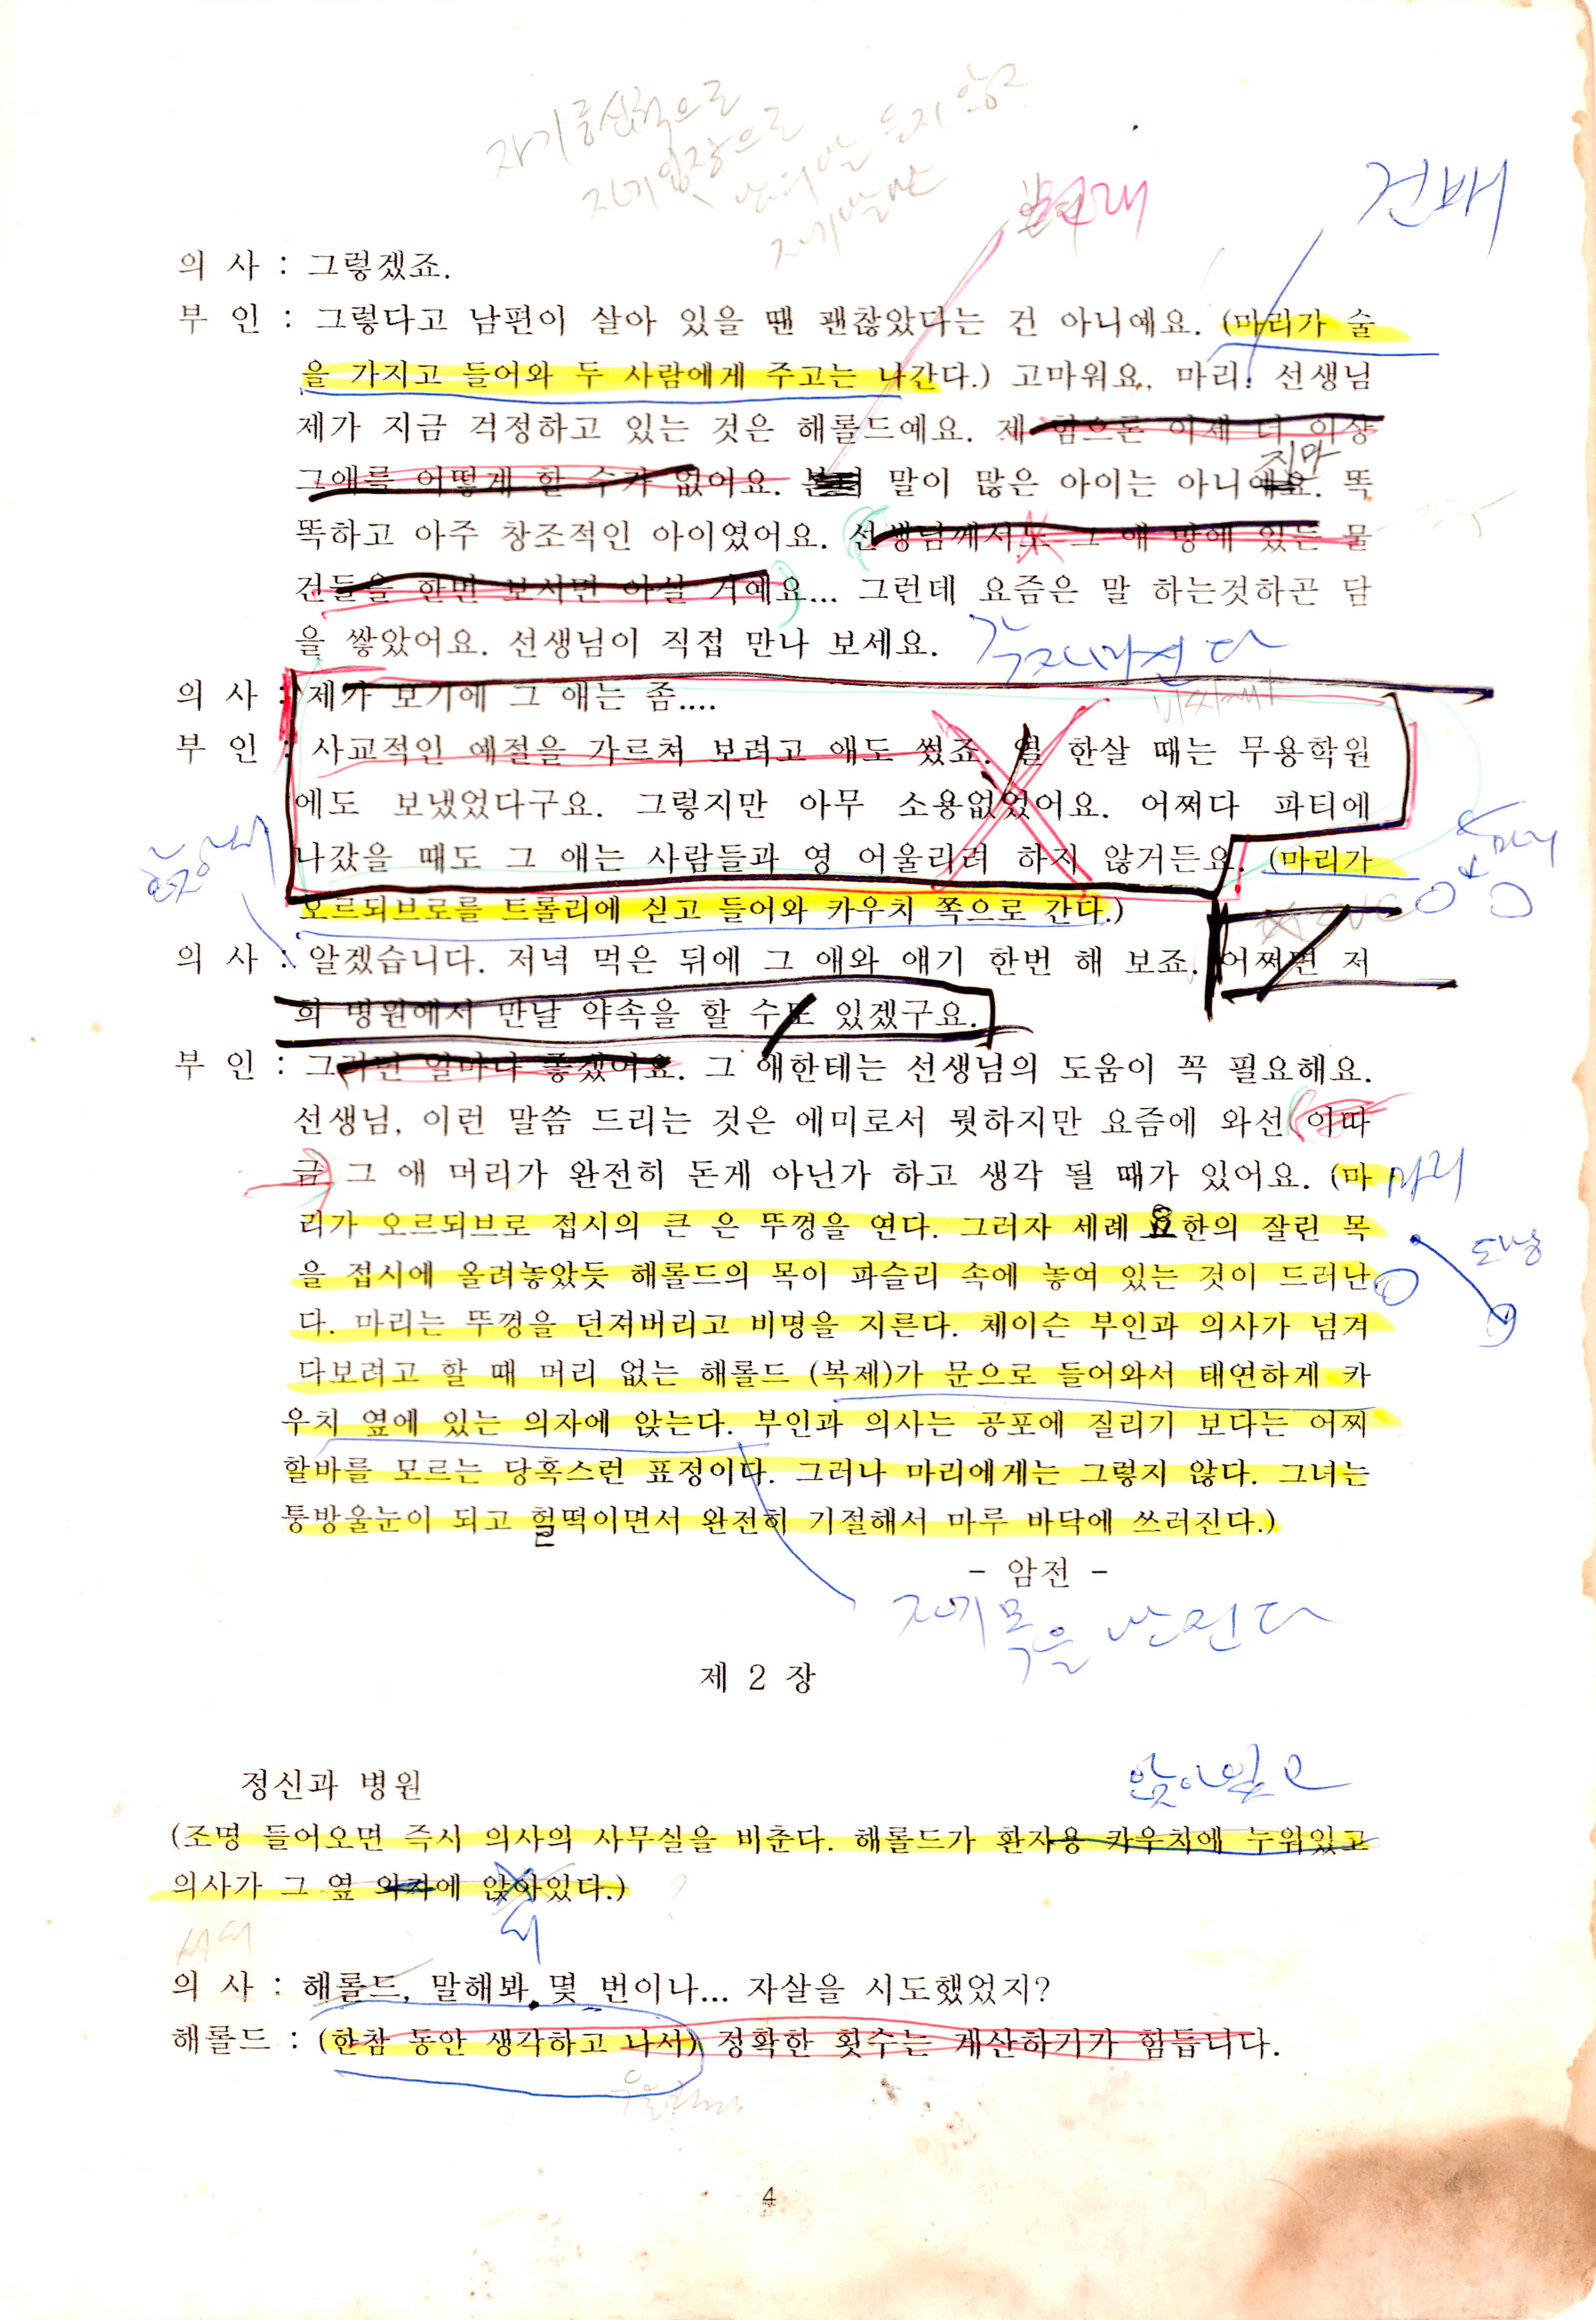 자기중심적으로
자기입장으로
남의 말 듣지 않고
자기말만
건배
의 사 : 그렇겠죠.
부 인 : 그렇다고 남편이 살아 있을 땐 괜찮았다는 건 아니예요. (마리가 술
을 가지고 들어와 두 사람에게 주고는 나간다.) 고마워요, 마리. 선생님
제가 지금 걱정하고 있는 것은 해롤드예요. 제 힘으론 이제 더 이상
지만
그애를 어떻게 할 수가 없어요. 말이 많은 아이는 아니예요. 똑
똑하고 아주 창조적인 아이였어요. 선생님께서도 그 애 방에 있는 물
건들을 한번 보시면 아실 거예요... 그런데 요즘은 말 하는것하곤 담
을 쌓았어요. 선생님이 직접 만나 보세요.
의 사 : 제가 보기에 그 애는 좀....
부 인 : 사교적인 예절을 가르쳐 보려고 애도 썼죠. 열 한살 때는 무용학원
에도 보냈었다구요. 그렇지만 아무 소용없었어요. 어쩌다 파티에
나갔을 때도 그 애는 사람들과 영 어울리려 하지 않거든요. (마리가
오르되브로를 트롤리에 싣고 들어와 카우치 쪽으로 간다.)
의 사 : 알겠습니다. 저녁 먹은 뒤에 그 애와 얘기 한번 해 보죠. 어쩌면 저
희 병원에서 만날 약속을 할 수도 있겠구요.
부 인 : 그러면 얼마나 좋겠어요. 그 애한테는 선생님의 도움이 꼭 필요해요.
선생님, 이런 말씀 드리는 것은 에미로서 뭣하지만 요즘에 와선 이따
금 그 애 머리가 완전히 돈게 아닌가 하고 생각 될 때가 있어요. (마
마리
리가 오르되브로 접시의 큰 은 뚜껑을 연다. 그러자 세례 요한의 잘린 목
을 접시에 올려놓았듯 해롤드의 목이 파슬리 속에 놓여 있는 것이 드러난
다. 마리는 뚜껑을 던져버리고 비명을 지른다. 체이슨 부인과 의사가 넘겨
다보려고 할 때 머리 없는 해롤드 (복제)가 문으로 들어와서 태연하게 카
우치 옆에 있는 의자에 앉는다. 부인과 의사는 공포에 질리기 보다는 어찌
할바를 모르는 당혹스런 표정이다. 그러나 마리에게는 그렇지 않다. 그녀는
퉁방울눈이 되고 헐떡이면서 완전히 기절해서 마루 바닥에 쓰러진다.)
- 암전 -
자기 목을 만진다
제 2 장
앉아있고
정신과 병원
(조명 들어오면 즉시 의사의 사무실을 비춘다. 해롤드가 환자용 카우치에 누워있고
의사가 그 옆 의자에 앉아있다.)
의 사 : 해롤드, 말해봐, 몇 번이나... 자살을 시도했었지?
해롤드 : (한참 동안 생각하고 나서) 정확한 횟수는 계산하기가 힘듭니다.
4